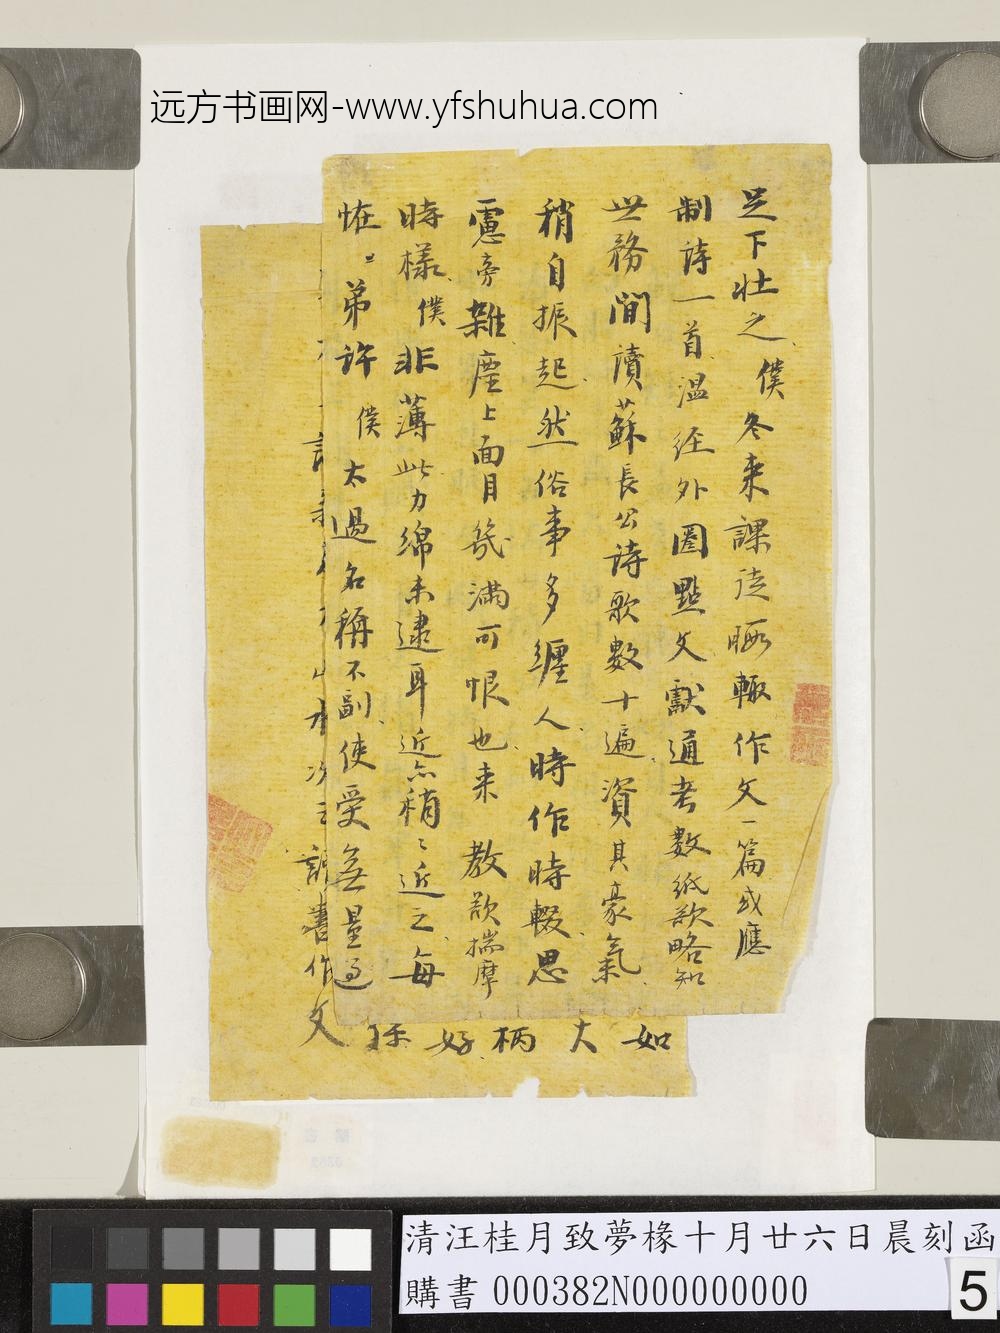 远方书画网-www.yfshuhua.com
足下壯之僕冬来課徒暇輙作文一篇或應
制詩一首温經外圈點文獻通考數紙欲略知
世務間讀蘇長公詩歌數十遍資其豪氣
稍自振起然俗事多纏人時作時輟思
慮旁雜塵上面目幾滿可恨也来教欲揣摩
時樣僕非薄此力綿未逮耳近亦稍〻近之每
恠〻弟許僕太過名稱不副使受無量過
如
大
柄
好
作文
清汪桂月致夢椽十月廿六日晨刻函
購書 000382N000000000
5